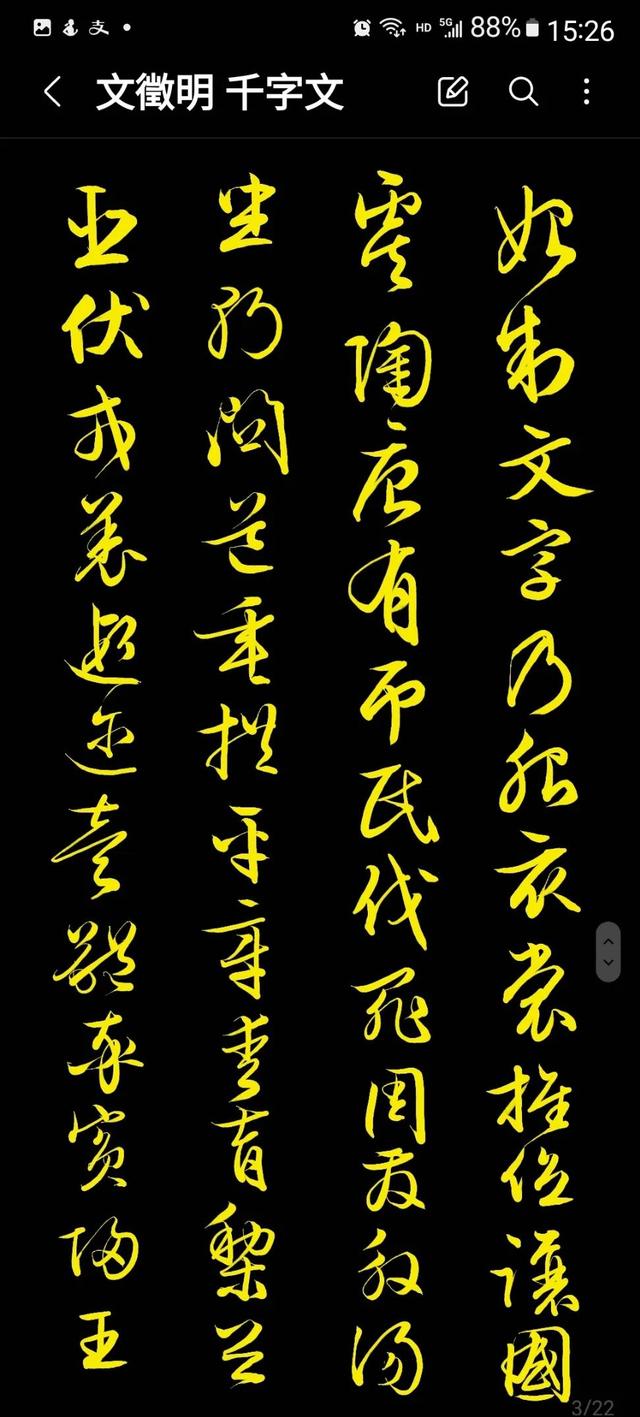 HD 5G 88% 15:26
文徵明 千字文
始制文字乃服衣裳推位讓國
虞陶唐有吊民伐罪周发殷湯
坐朝問道垂拱平章愛育黎首
臣伏戎羌遐迩壹體率賓歸王
3/22